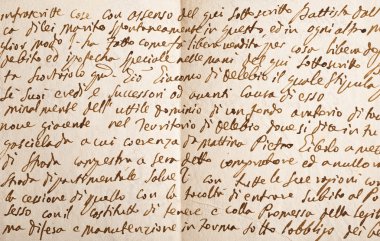 infrascritte Cose con assenso del qui sottoscritto Battista dall
ca di lei marito spontaneamente in questo, ed in ogni altro m
glior modo ha fatto come fa libera vendita per cosa libera de
debito ed ipoteca speciale nelle mani del qui sottoscritto
Gio Giacomo di Delebio il quale stipula
Se suoi eredi e successori ad quanti Causa di esso
minalmente dell' uttile dominio di un fondo aratorio di
nove giacente nel Territorio di Delebio dove si dice in
a cui coerenza da mattina Pietro a nel
di strada a sera detto compratore ed a nullo
strada dipartimentale Salve con tutte le sue ragioni co
la cessione di quello con la facoltà di entrare Subito al Po
sesso con il Costituto di tenere e colla Promessa della legit
ma difesa e manutenzione in forma sotto l'obbligo dei be